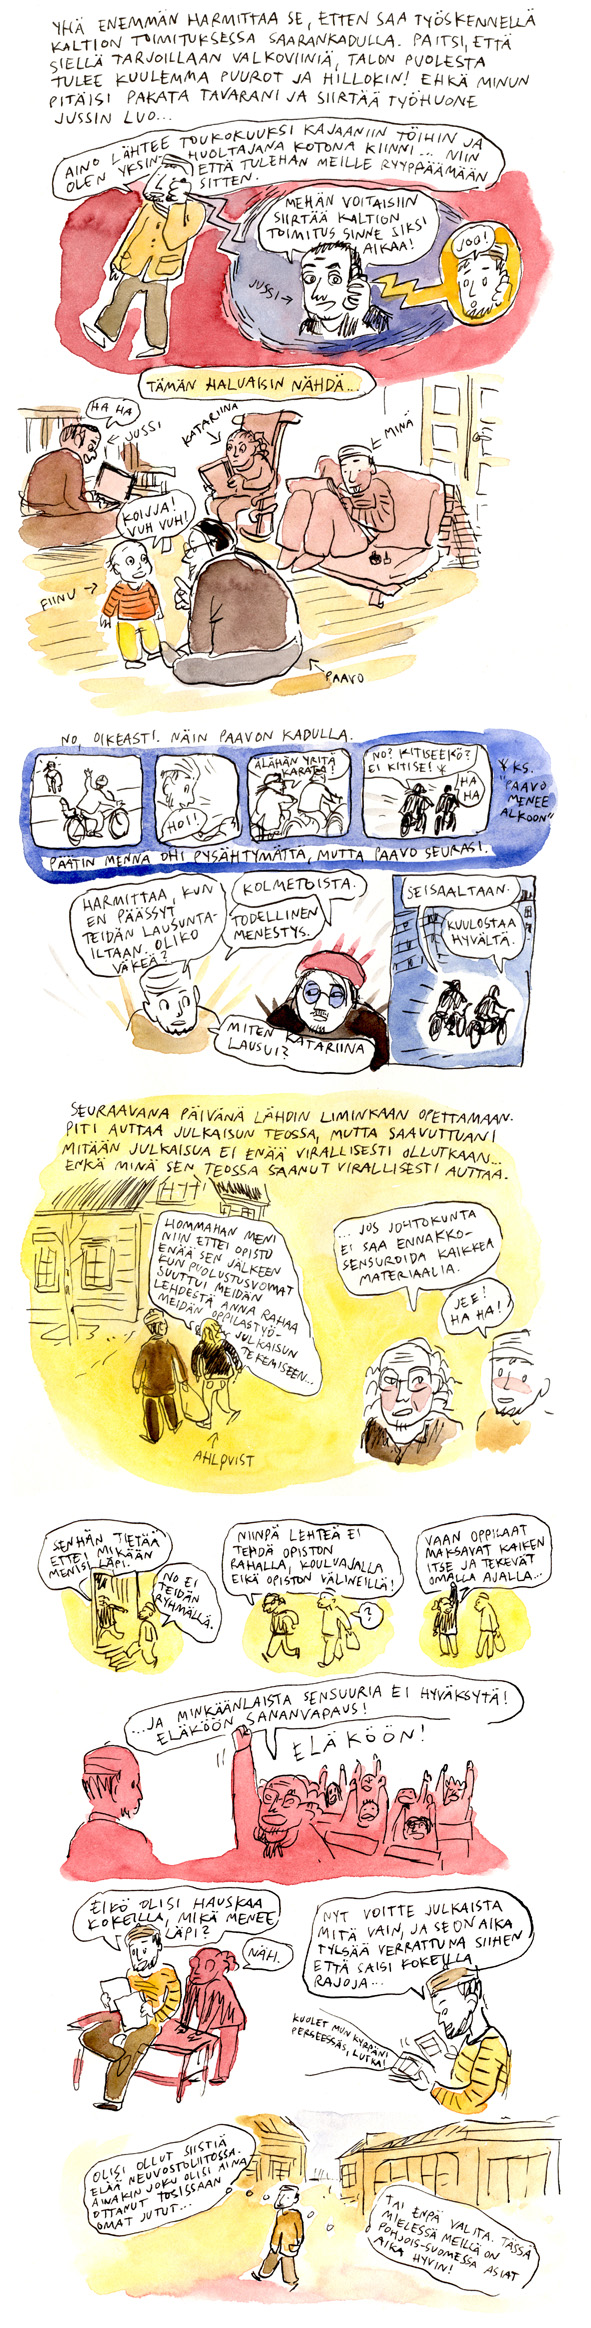 YHÄ ENEMMÄN HARMITTAA SE, ETTEN SAA TYÖSKENNELLÄ
KALTION TOIMITUKSESSA SAARANKADULLA. PAITSI, ETTÄ
SIELLÄ TARJOILLAAN VALKOVIINIÄ, TALON PUOLESTA
TULEE KUULEMMA PUUROT JA HILLOKIN! EHKÄ MINUN
PITÄISI PAKATA TAVARANI JA SIIRTÄÄ TYÖHUONE
JUSSIN LUO...
AINO LÄHTEE TOUKOKUUKSI KAJAANIIN TÖIHIN JA
OLEN YKSINHUOLTAJANA KOTONA KIINNI... NIIN
ETTÄ TULEHAN MEILLE RYYPPÄÄMÄÄN
SITTEN.
MEHÄN VOITAISIIN
SIIRTÄÄ KALTION
TOIMITUS SINNE SIKSI
AIKAA!
JOO!
JUSSI →
TÄMÄN HALUAISIN NÄHDÄ...
HA HA
JUSSI
KATARIINA
MINÄ
KOIJJA!
VUH VUH!
FIINU →
PAAVO
NO, OIKEASTI. NÄIN PAAVON KADULLA.
HOI!
ÄLÄHÄN YRITÄ
KARATA!
NO? KITISEEKÖ?
EI KITISE! *
HA
HA
* KS.
"PAAVO
MENEE
ALKOON"
PÄÄTIN MENNÄ OHI PYSÄHTYMÄTTÄ, MUTTA PAAVO SEURASI.
HARMITTAA, KUN
EN PÄÄSSYT
TEIDÄN LAUSUNTA-
ILTAAN. OLIKO
VÄKEÄ?
KOLMETOISTA.
TODELLINEN
MENESTYS.
MITEN KATARIINA
LAUSUI?
SEISAALTAAN.
KUULOSTAA
HYVÄLTÄ.
SEURAAVANA PÄIVÄNÄ LÄHDIN LIMINKAAN OPETTAMAAN.
PITI AUTTAA JULKAISUN TEOSSA, MUTTA SAAVUTTUANI
MITÄÄN JULKAISUA EI ENÄÄ VIRALLISESTI OLLUTKAAN...
ENKÄ MINÄ SEN TEOSSA SAANUT VIRALLISESTI AUTTAA.
HOMMAHAN MENI
NIIN ETTEI OPISTO
ENÄÄ SEN JÄLKEEN
KUN PUOLUSTUSVOIMAT
SUUTTUI MEIDÄN
LEHDESTÄ ANNA RAHAA
MEIDÄN OPPILASTYÖ-
JULKAISUN
TEKEMISEEN...
... JOS JOHTOKUNTA
EI SAA ENNAKKO-
SENSUROIDA KAIKKEA
MATERIAALIA.
JEE!
HA HA!
AHLQVIST
SENHÄN TIETÄÄ
ETTEI MIKÄÄN
MENISI LÄPI.
NO EI
TEIDÄN
RYHMÄLLÄ.
NIINPÄ LEHTEÄ EI
TEHDÄ OPISTON
RAHALLA, KOULUAJALLA
EIKÄ OPISTON VÄLINEILLÄ!
?
VAAN OPPILAAT
MAKSAVAT KAIKEN
ITSE JA TEKEVÄT
OMALLA AJALLA...
...JA MINKÄÄNLAISTA SENSUURIA EI HYVÄKSYTÄ!
ELÄKÖÖN SANANVAPAUS!
ELÄKÖÖN!
EIKÖ OLISI HAUSKAA
KOKEILLA, MIKÄ MENEE
LÄPI?
NÄH.
NYT VOITTE JULKAISTA
MITÄ VAIN, JA SE ON AIKA
TYLSÄÄ VERRATTUNA SIIHEN
ETTÄ SAISI KOKEILLA
RAJOJA...
KUOLET MUN KYRPÄNI
PERSEESSÄS, LUTKA!
OLISI OLLUT SIISTIÄ
ELÄÄ NEUVOSTOLIITOSSA.
AINAKIN JOKU OLISI AINA
OTTANUT TOSISSAAN
OMAT JUTUT...
TAI ENPÄ VALITA. TÄSSÄ
MIELESSÄ MEILLÄ ON
POHJOIS-SUOMESSA ASIAT
AIKA HYVIN!